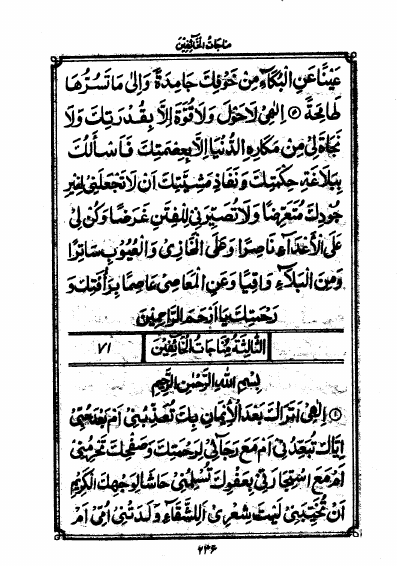 مناجات الخائفين
عَيْنًا عَنِ الْبُكَاءِ مِنْ خَوْفِكَ جَامِدَةً وَاِلٰى مَا تَسُرُّهَا
طَامِحَةً ۞ اِلٰهِىْ لَا حَوْلَ وَلَا قُوَّةَ اِلَّا بِقُدْرَتِكَ وَلَا
نَجَاةَ لِىْ مِنْ مَكَارِهِ الدُّنْيَا اِلَّا بِعِصْمَتِكَ فَاَسْأَلُكَ
بِبَلَاغَةِ حِكْمَتِكَ وَنَفَاذِ مَشِيَّتِكَ اَنْ لَا تَجْعَلَنِىْ لِغَيْرِ
جُوْدِكَ مُتَعَرِّضًا وَلَا تُصَيِّرَنِىْ لِلْفِتَنِ غَرَضًا وَكُنْ لِىْ
عَلَى الْاَعْدَاءِ نَاصِرًا وَعَلَى الْمَخَازِىْ وَالْعُيُوْبِ سَاتِرًا
وَمِنَ الْبَلَاءِ وَاقِيًا وَعَنِ الْمَعَاصِىْ عَاصِمًا بِرَأْفَتِكَ وَ
رَحْمَتِكَ يَا اَرْحَمَ الرَّاحِمِيْنَ
الثَّالِثَةُ مُنَاجَاتُ الْخَائِفِيْنَ ۷۱
بِسْمِ اللهِ الرَّحْمٰنِ الرَّحِيْمِ
۞ اِلٰهِىْ اَتَرَاكَ بَعْدَ الْاِيْمَانِ بِكَ تُعَذِّبُنِىْ اَمْ بَعْدَ حُبِّىْ
اِيَّاكَ تُبَعِّدُنِىْ اَمْ مَعَ رَجَائِىْ لِرَحْمَتِكَ وَصَفْحِكَ تَحْرِمُنِىْ
اَمْ مَعَ اسْتِجَارَتِىْ بِعَفْوِكَ تُسْلِمُنِىْ حَاشَا لِوَجْهِكَ الْكَرِيْمِ
اَنْ تُخَيِّبَنِىْ لَيْتَ شِعْرِىْ اَلِلشَّقَاءِ وَلَدَتْنِىْ اُمِّىْ اَمْ
۶۴۶